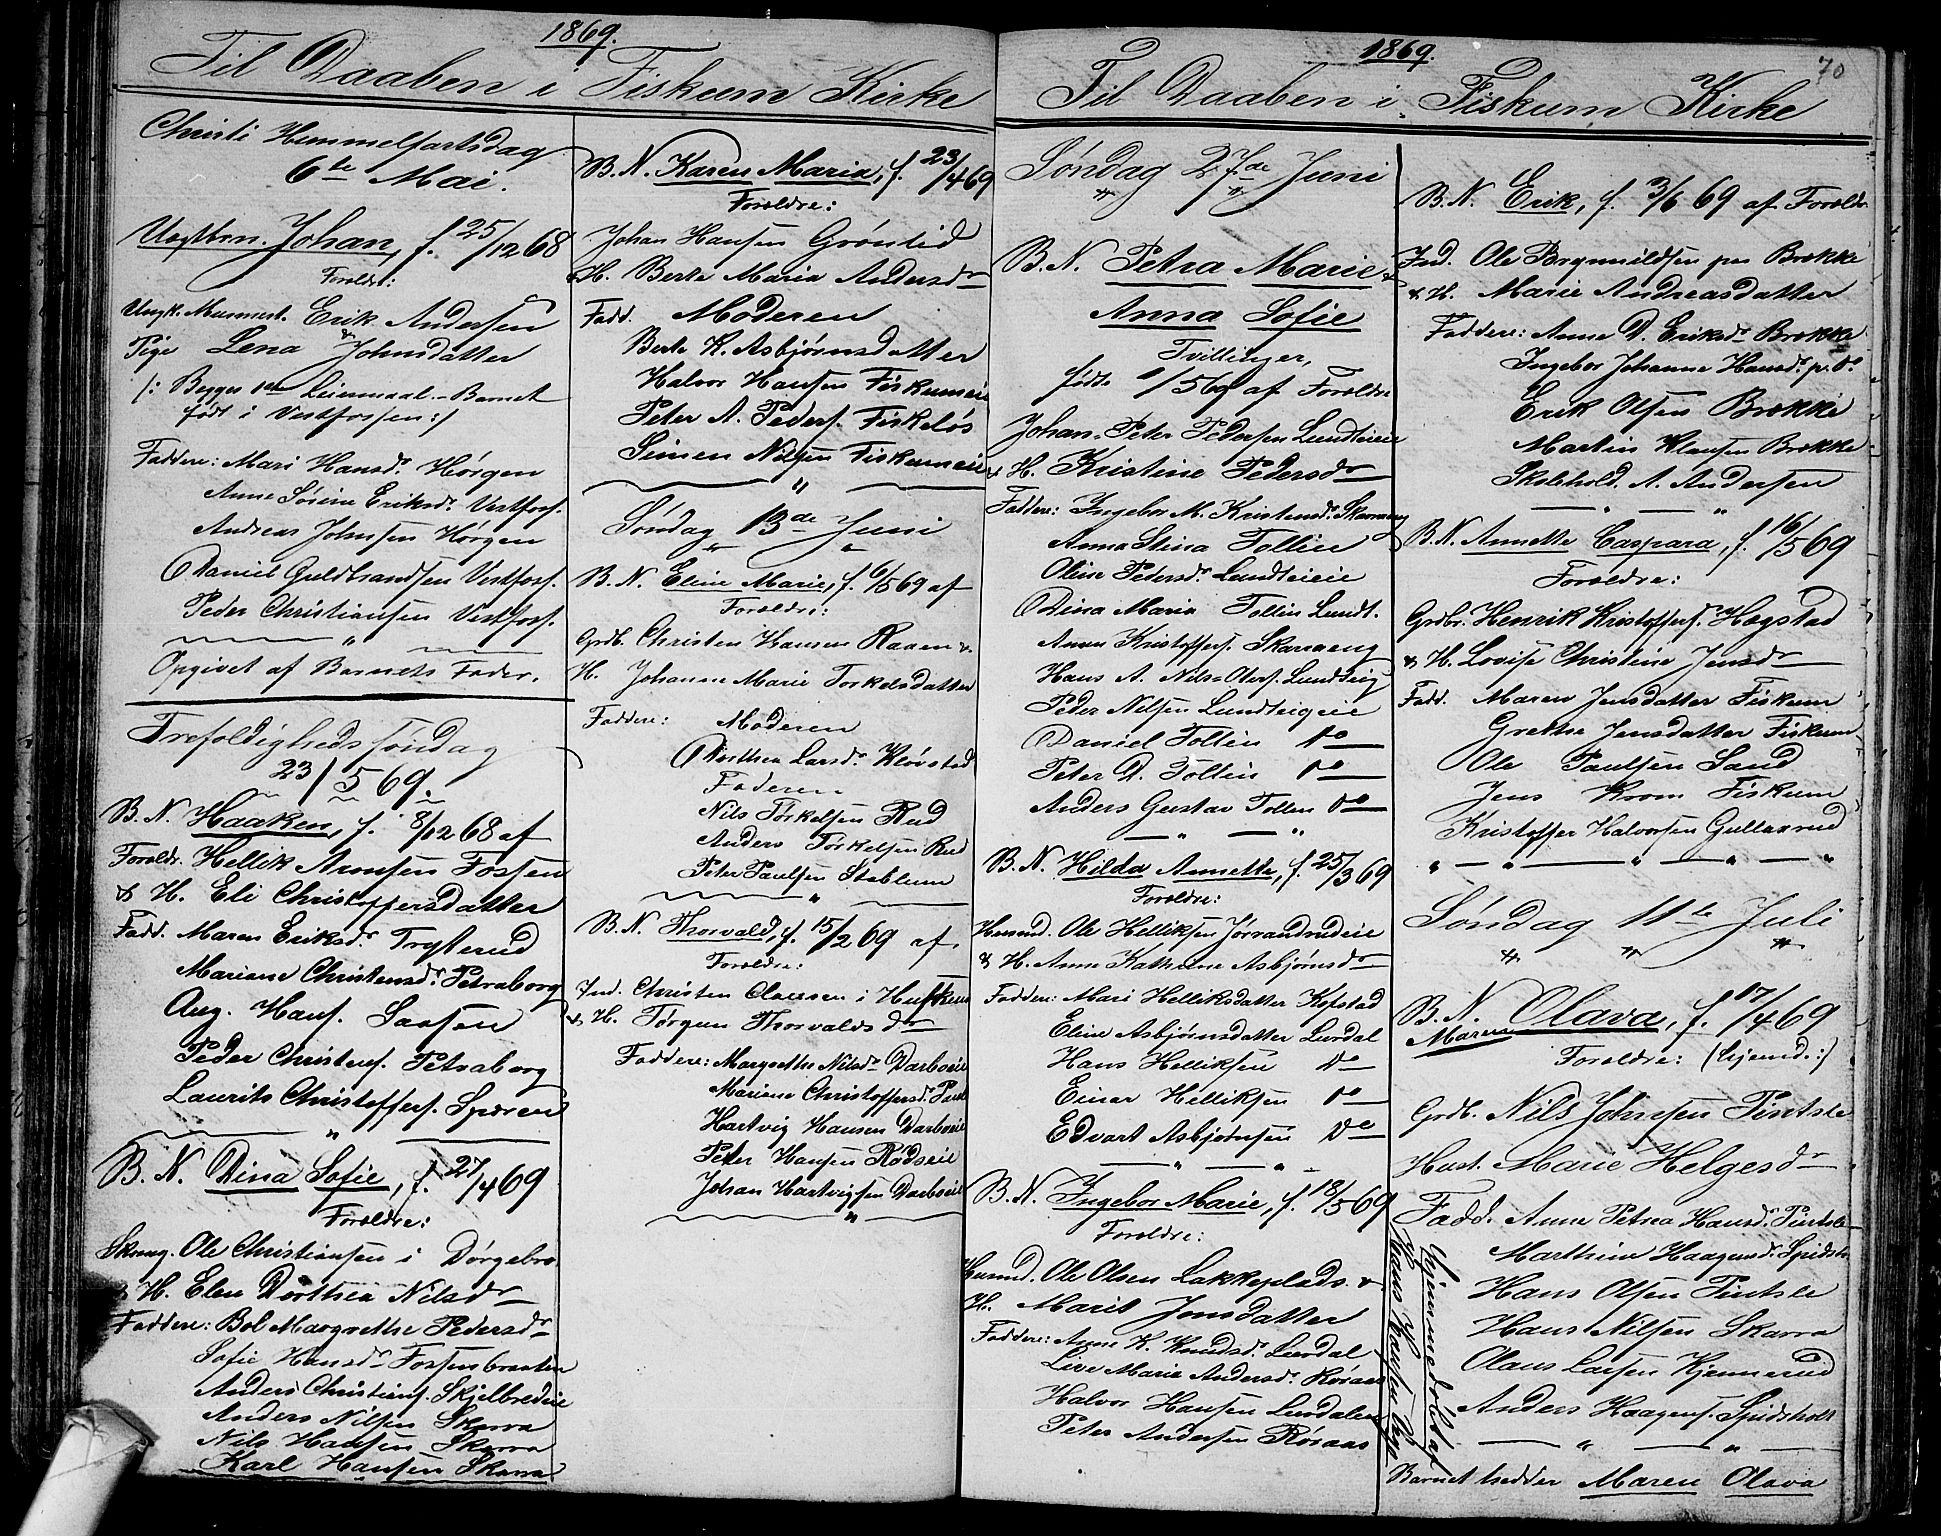 1869.
Til Daaben i Fiskum Kirke
Christi Himmelfartsdag
6te Mai.
Uægtbrn. Johan, f. 25/12 68
Foreldr:
Ungk. Erik Andersen
&
Pige Lena Johnsdatter
/: Begges 1ste Leiermaal - Barnet
født i Vestfossen :/
Faddere: Mari Hansdr. Hørgen
Anne Sørine Eriksdr. Vestfoss.
Andreas Johnsen Hørgen
Daniel Guldbrandsen Vestfoss.
Peder Christiansen Vestfoss.
Opgivet af Barnets Fader.
Trefoldigheds søndag
23/5 69.
B. N. Haaken, f. 8/12 68 af
Foreldr. Hellik Arnesen Fossen
& H. Eli Christoffersdatter
Fadd. Maren Eriksdr. Trytterud
Mariane Christensdr. Petraborg
Aug. Hans. Saasen
Peder Christens. Petraborg
Laurits Christoffers. Spæren
B. N. Dina Sofie, f. 27/4 69
Foreldre:
Ole Christiansen i Dørgebro
& H. Elen Dorthea Nilsdr
Faddere: Bol Margrethe Pedersdr
Sofie Hansdr Fossenbraaten
Anders Christians. Skjelbredeie
Anders Nilsen Skarra
Nils Hansen Skarra
Karl Hansen Skarra
B. N. Karen Maria, f. 23/4 69
Foreldre:
Johan Hansen Grøntid
& H. Berte Maria Andersdr
Fadd. Moderen
Berte K. Asbjørnsdatter
Halvor Hansen Fiskumeie
Peter A. Peders. Fiskeløs
Simen Nilsen Fiskumeie
Søndag 13de Juni
B. N. Eline Marie, f. 6/5 69 af
Foreldre:
Grdb. Christen Hansen Raaen &
H. Johanne Marie Torkelsdatter
Faddere: Moderen
Dorthea Larsdr. Kløvstad
Faderen
Nils Torkelsen Rud
Anders Torkelsen Rud
Peter Paulsen Stablum
B. N. Thorvald, f. 15/2 69 af
Foreldre:
Ind. Christen Olavesen i
& H. Jørgen Thorvaldsdr
Faddere: Margrethe Nilsdr Darboeie
Mariane Christoffersdr.
Hartvig Hansen Darboeie
Peter Hansen Rødseie
Johan Hartvigsen Darboeie
1869.
70
Til Daaben i Fiskum Kirke
Søndag 27de Juni
B. N. Petra Marie &
Anna Sofie
Tvillinger,
fødte 1/5 69 af Foreldre
Johan Peter Pedersen Lundteieie
& H. Kristine Pedersdr
Faddere: Ingebor M. Kristensdr. Skarraeng
Anna Stina Tollin
Oline Pedersdr. Lundteieie
Dina Maria Tollin Lundt.
Anne Kristoffers. Skarraeng
Hans A. Nils-Olers. Lundteig
Peder Nilsen Lundteigeie
Daniel Tollin do
Peter D. Tollin do
Anders Gustav Tollen do
B. N. Hilda Annette, f. 25/3 69
Foreldre:
Husmd. Ole Helliksen Jørrandrudeie
& H. Anne Kathrine Asbjørnsdr
Faddere: Mari Helliksdatter Kopstad
Eline Asbjørnsdatter Lurdal
Hans Helliksen do
Einar Helliksen do
Edvart Asbjørnsen do
B. N. Ingebor Marie, f. 18/5 69
Foreldre:
Husmd. Ole Olsen Lakkeplads &
H. Marit Jonsdatter
Faddere: Anne K. Knudsdr. Lurdal
Live Maria Andersdr. Røraas
Halvor Hansen Lurdalen
Peter Andersen Røraas
B. N. Erik, f. 3/6 69 af Foreldr
Ind. Ole Brynnildsen paa Brekke
& H. Marie Andreasdatter
Faddere: Anne D. Eriksdr Brekke
Ingebor Johanne Hansdr. p. do
Erik Olsen Brekke
Martin Klausen Brekke
Skolehold. A. Andersen
B. N. Annette Caspara, f. 16/5 69
Foreldre:
Grdbr. Henrik Kristoffers. Hægstad
& H. Lovise Christine Jensdr
Fadd. Maren Jensdatter Fiskum
Grethe Jensdatter Fiskum
Ole Paulsen Sand
Jens Krom Fiskum
Kristoffer Halvorsen Gullaxrud
Søndag 11te Juli
B. N. Olava, f. 17/4 69
Maren
Foreldre: (hjemd:)
Grdb. Nils Johnsen Tintsle
Hust. Marie Helgesdr
Fadd. Anne Petrea Hansdr. Tintsle
Marthine Haagensdr. Spidsh
Hans Olsen Tintsle
Hans Nilsen Skarra
Olaus Larsen Kjennerud
Anders Haagens. Spidsholt
Barnet hedder Maren Olava
hjemmedøbt af
Hans Hansen